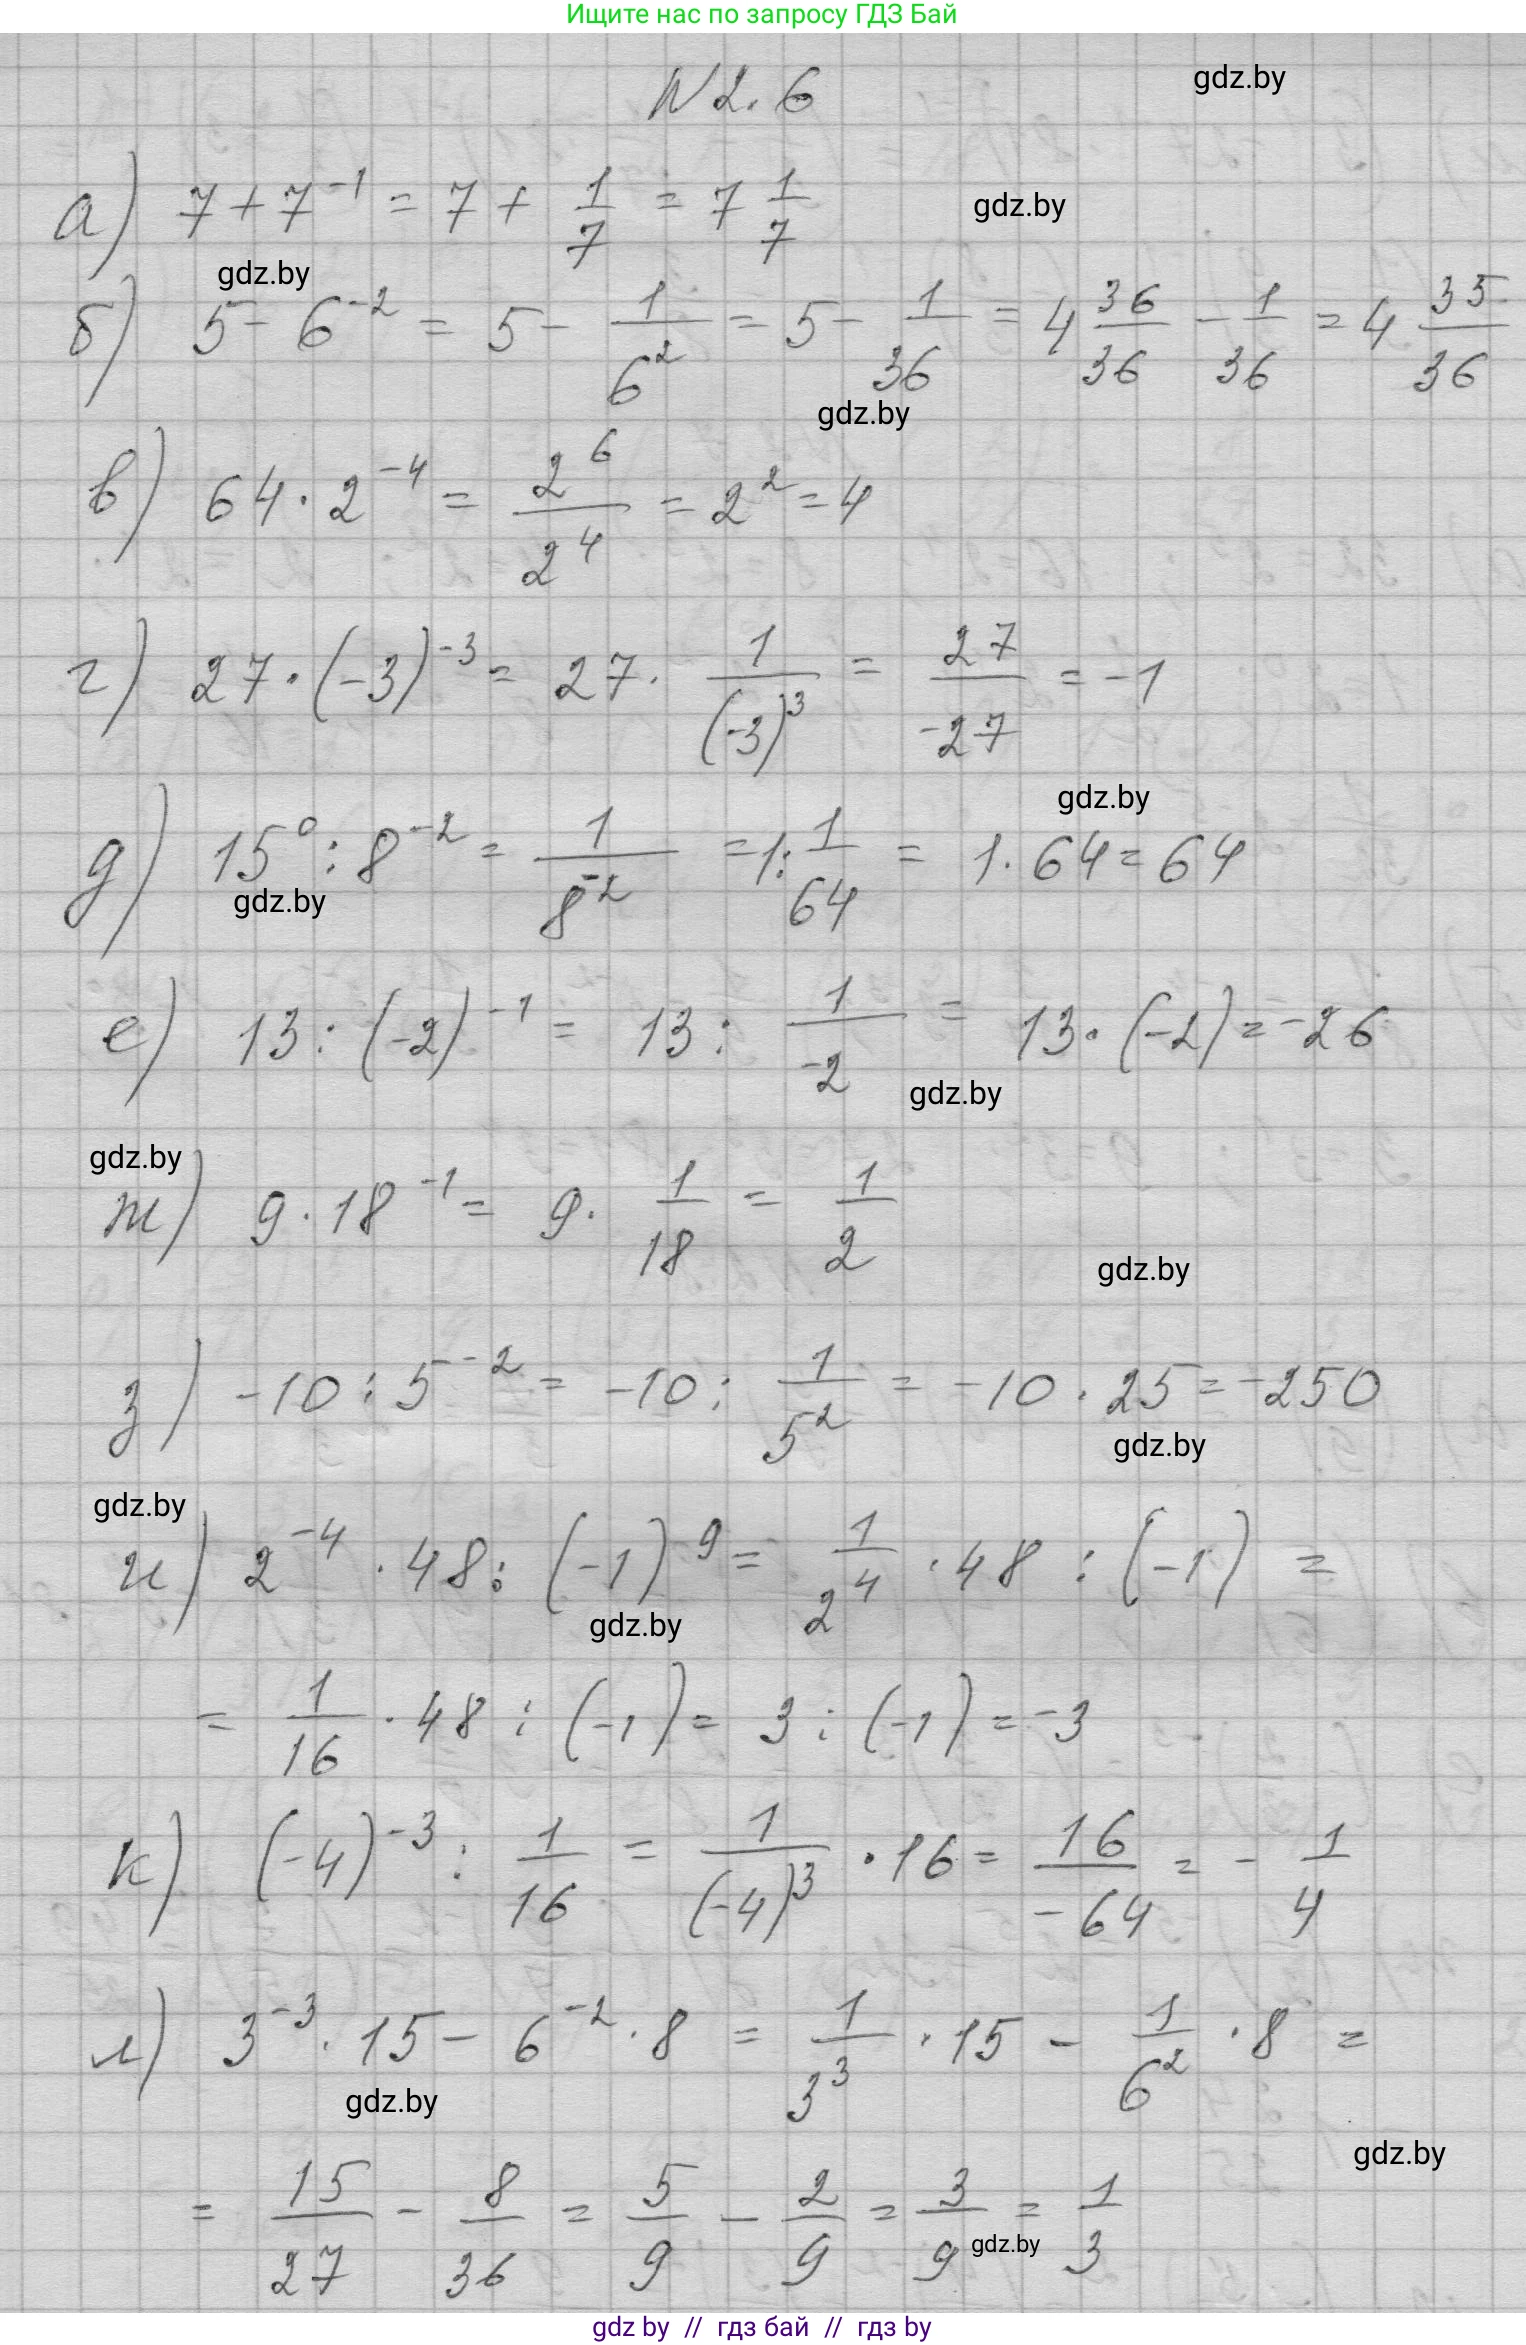 Ищите нас по запросу ГДЗ Бай
N 2.6
gdz.by
а) 7 + 7^{-1} = 7 + 1/7 = 7 1/7
gdz.by
gdz.by
б) 5 - 6^{-2} = 5 - 1/6^2 = 5 - 1/36 = 4 36/36 - 1/36 = 4 35/36
gdz.by
в) 64 · 2^{-4} = 2^6/2^4 = 2^2 = 4
г) 27 · (-3)^{-3} = 27 · 1/(-3)^3 = 27/-27 = -1
gdz.by
д) 15^0 : 8^{-2} = 1/8^{-2} = 1 : 1/64 = 1 · 64 = 64
gdz.by
е) 13 : (-2)^{-1} = 13 : 1/-2 = 13 · (-2) = -26
gdz.by
gdz.by
ж) 9 · 18^{-1} = 9 · 1/18 = 1/2
gdz.by
з) -10 : 5^{-2} = -10 : 1/5^2 = -10 · 25 = -250
gdz.by
gdz.by
и) 2^{-4} · 48 : (-1)^9 = 1/2^4 · 48 : (-1) =
gdz.by
= 1/16 · 48 : (-1) = 3 : (-1) = -3
к) (-4)^{-3} : 1/16 = 1/(-4)^3 · 16 = 16/-64 = - 1/4
л) 3^{-3} · 15 - 6^{-2} · 8 = 1/3^3 · 15 - 1/6^2 · 8 =
gdz.by
gdz.by
= 15/27 - 8/36 = 5/9 - 2/9 = 3/9 = 1/3
gdz.by
gdz by // гдз бай // гдз by